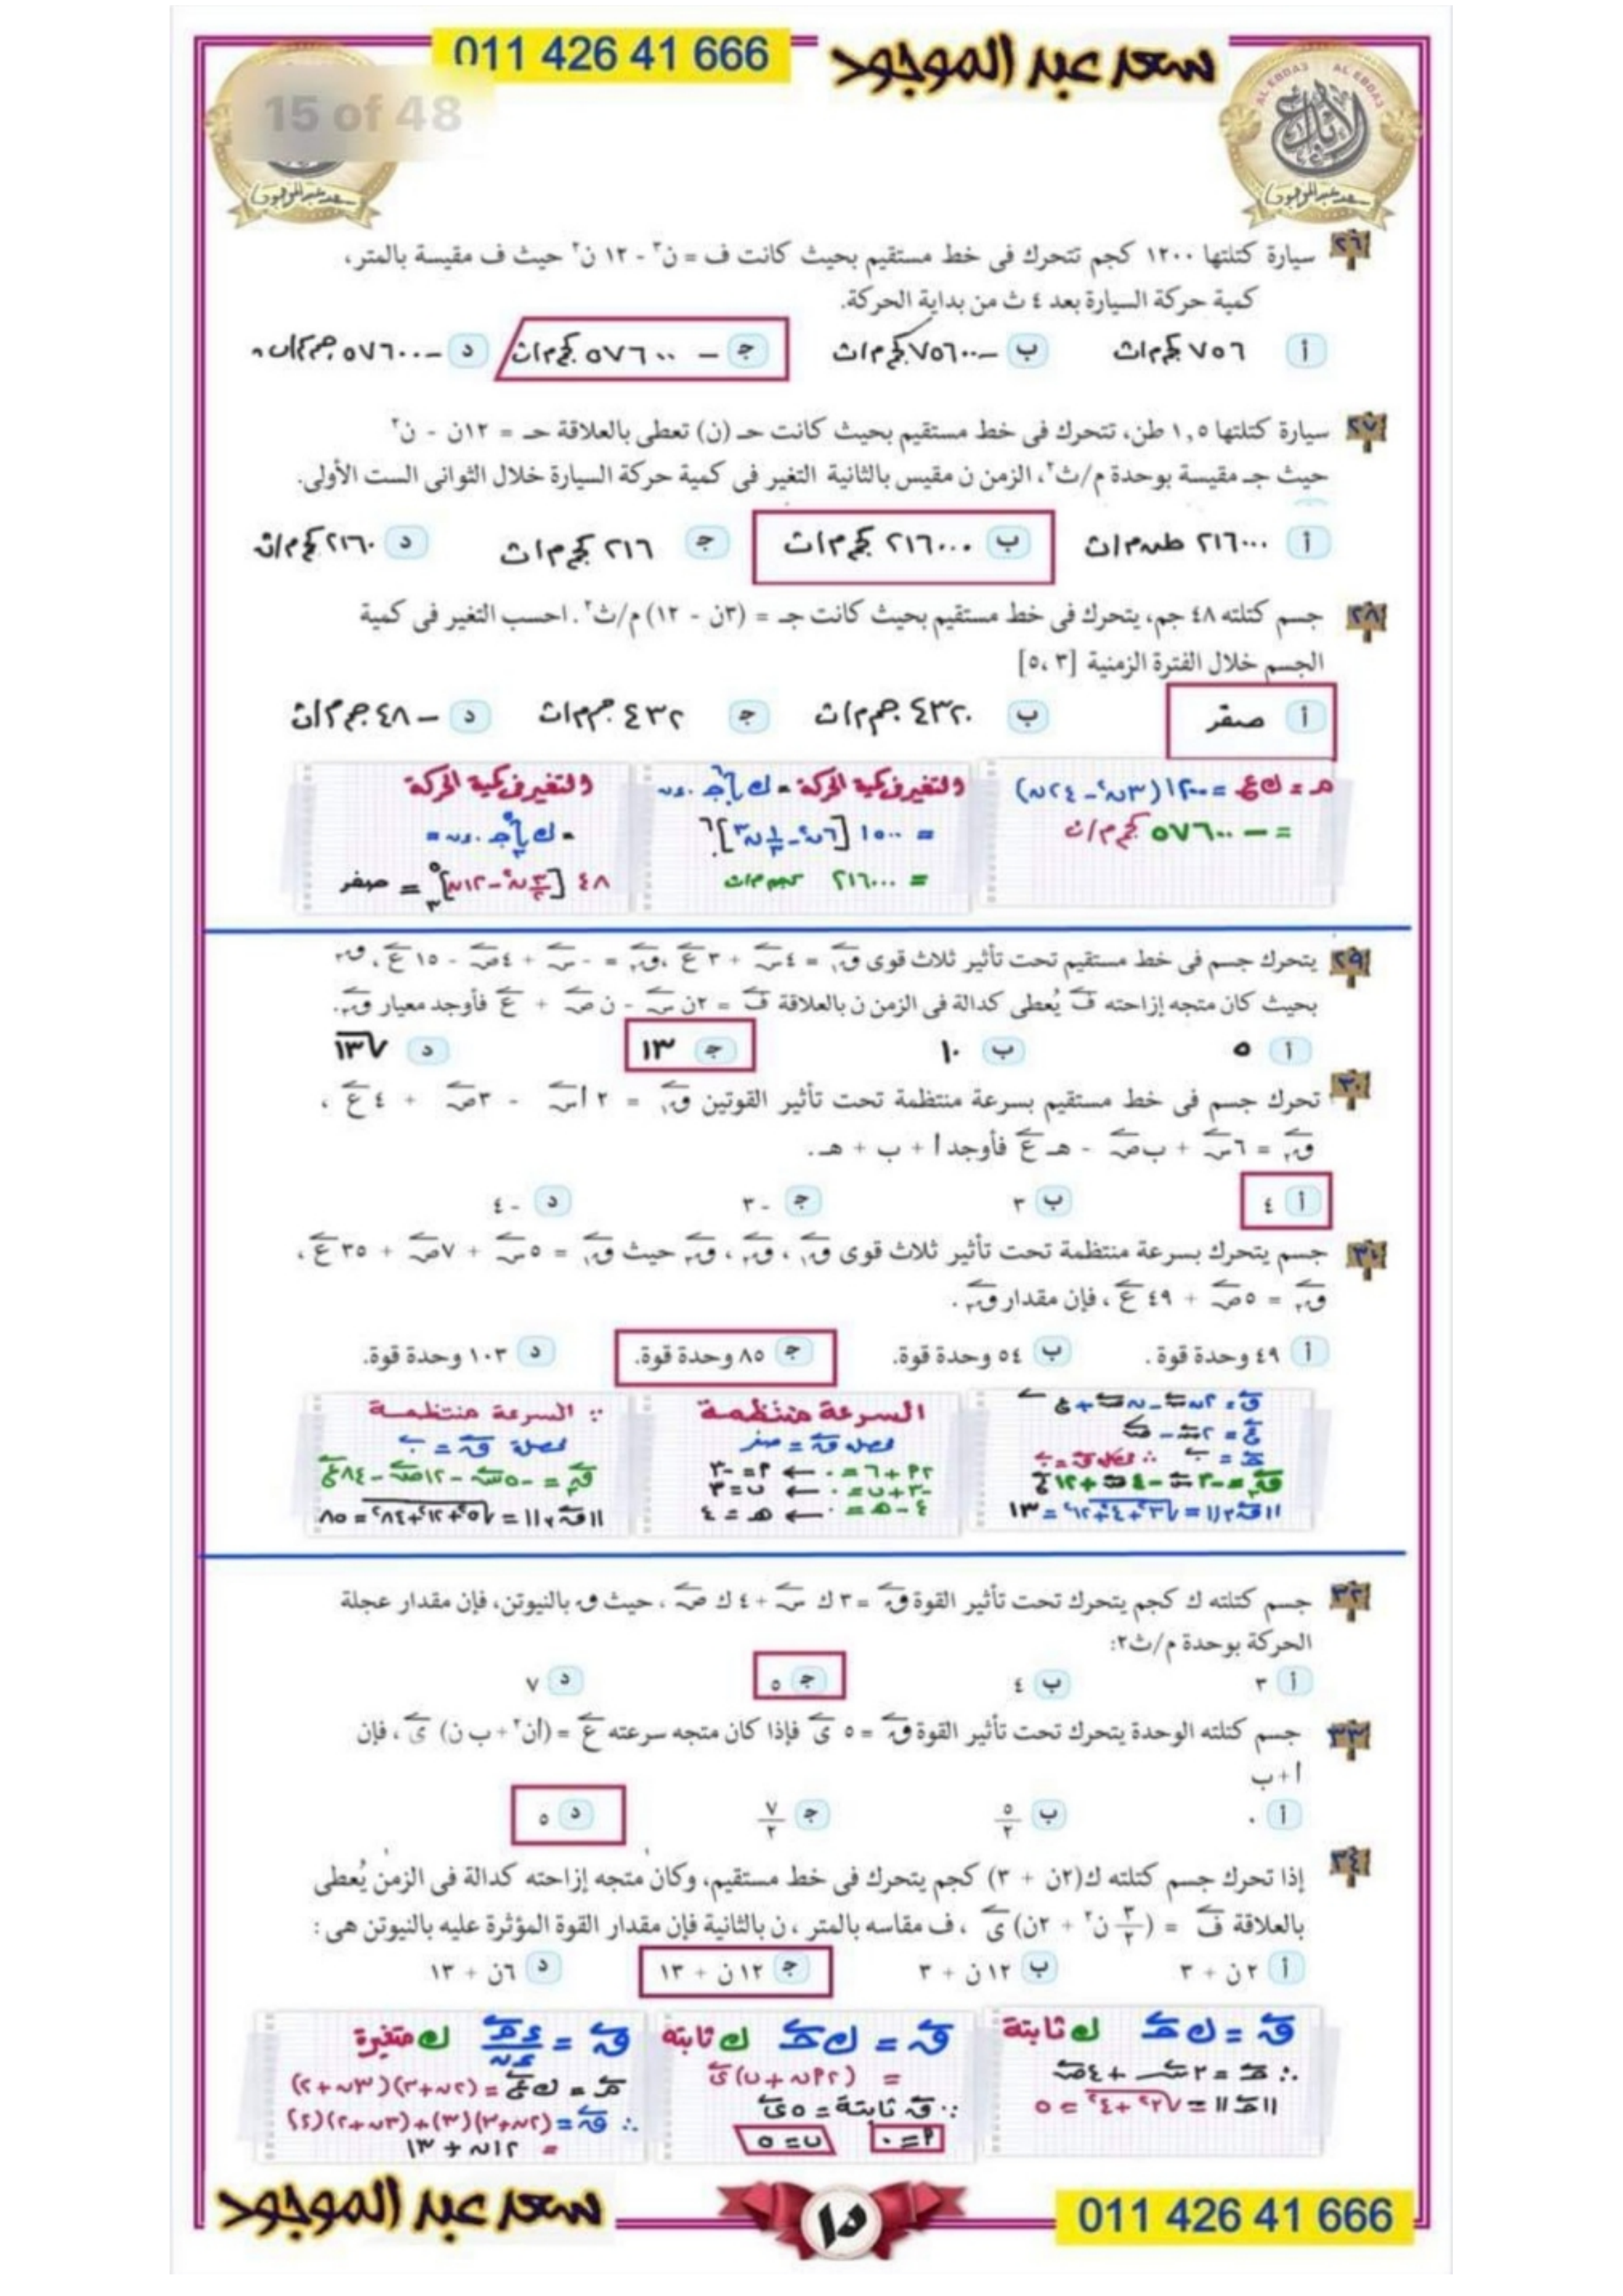 011 426 41 666
سعد عبد الموجود
15 of 48
AL EBDA3 AL EBDA3
الابداع
سعد عبد الموجود
سعد عبد الموجود
٢٦ سيارة كتلتها ١٢٠٠ كجم تتحرك فى خط مستقيم بحيث كانت ف = ن٣ - ١٢ ن٢ حيث ف مقيسة بالمتر،
كمية حركة السيارة بعد ٤ ث من بداية الحركة.
أ ٧٥٦ كجم م/ث ب -٧٥٦٠٠ كجم م/ث ج -٥٧٦٠٠ كجم م/ث د -٥٧٦٠٠ جم م/ث
٢٧ سيارة كتلتها ١,٥ طن، تتحرك فى خط مستقيم بحيث كانت حـ (ن) تعطى بالعلاقة حـ = ١٢ن - ن٢
حيث جـ مقيسة بوحدة م/ث٢، الزمن ن مقيس بالثانية التغير فى كمية حركة السيارة خلال الثوانى الست الأولى.
أ ٢١٦٠٠٠ طن م/ث ب ٢١٦٠٠٠ كجم م/ث ج ٢١٦ كجم م/ث د ٢١٦٠ كجم م/ث
٢٨ جسم كتلته ٤٨ جم، يتحرك فى خط مستقيم بحيث كانت جـ = (٣ن - ١٢) م/ث٢. احسب التغير فى كمية
الجسم خلال الفترة الزمنية [٣، ٥]
أ صفر ب ٤٣٢٠ جم م/ث ج ٤٣٢ جم م/ث د -٤٨ جم م/ث
م = ك ع = ١٢٠٠ (٣ن٢ - ٢٤ن)
= -٥٧٦٠٠ كجم م/ث
والتغير فى كمية الحركة = ك ∫ جـ . ءن
= ١٥٠٠ [٦ن٢ - ١/٣ ن٣]
= ٢١٦٠٠٠ كجم م/ث
والتغير فى كمية الحركة
= ك ∫ جـ . ءن =
٤٨ [٣/٢ ن٢ - ١٢ن] = صفر
٢٩ يتحرك جسم فى خط مستقيم تحت تأثير ثلاث قوى ق١ = ٤س + ٣ع، ق٢ = -س + ٤ص - ١٥ع، ق٣
بحيث كان متجه إزاحته ف يُعطى كدالة فى الزمن ن بالعلاقة ف = ٢ن س - ن ص + ع فأوجد معيار ق٣.
أ ٥ ب ١٠ ج ١٣ د √١٣
٣٠ تحرك جسم فى خط مستقيم بسرعة منتظمة تحت تأثير القوتين ق١ = ٢ أس - ٣ص + ٤ع ،
ق٢ = ٦س + ب ص - هـ ع فأوجد أ + ب + هـ.
أ ٤ ب ٣ ج -٣ د -٤
٣١ جسم يتحرك بسرعة منتظمة تحت تأثير ثلاث قوى ق١ ، ق٢ ، ق٣ حيث ق١ = ٥س + ٧ص + ٣٥ع ،
ق٢ = ٥ص + ٤٩ع ، فإن مقدار ق٣ .
أ ٤٩ وحدة قوة . ب ٥٤ وحدة قوة. ج ٨٥ وحدة قوة. د ١٠٣ وحدة قوة.
ف = ٢ن س - ن ص + ع
ع = ٢س - ص
ق٣ = -٣س - ٤ص + ١٢ع
||ق٣|| = √٣٢+٤٢+١٢٢ = ١٣
السرعة منتظمة
محصلة ق = صفر
٢أ + ٦ = ٠ ← أ = -٣
-٣ + ب = ٠ ← ب = ٣
٤ - هـ = ٠ ← هـ = ٤
∵ السرعة منتظمة
محصلة ق = ٠
ق٣ = -٥س - ١٢ص - ٨٤ع
||ق٣|| = √٥٢+١٢٢+٨٤٢ = ٨٥
٣٢ جسم كتلته ك كجم يتحرك تحت تأثير القوة ق = ٣ ك س + ٤ ك ص ، حيث ق بالنيوتن، فإن مقدار عجلة
الحركة بوحدة م/ث٢:
أ ٣ ب ٤ ج ٥ د ٧
٣٣ جسم كتلته الوحدة يتحرك تحت تأثير القوة ق = ٥ ى فإذا كان متجه سرعته ع = (أن٢ + ب ن) ى ، فإن
أ + ب
أ ٠ ب ٥/٢ ج ٧/٢ د ٥
٣٤ إذا تحرك جسم كتلته ك(٢ن + ٣) كجم يتحرك فى خط مستقيم، وكان متجه إزاحته كدالة فى الزمن يُعطى
بالعلاقة ف = (٣/٢ ن٢ + ٢ن) ى ، ف مقاسه بالمتر ، ن بالثانية فإن مقدار القوة المؤثرة عليه بالنيوتن هى :
أ ٢ن + ٣ ب ١٢ن + ٣ ج ١٢ن + ١٣ د ٦ن + ١٣
ق = ك جـ ك ثابتة
∴ جـ = ٣س + ٤ص
||جـ|| = √٣٢+٤٢ = ٥
ق = ك جـ ك ثابته
= (٢أن + ب) ى
∵ ق ثابتة = ٥ى
أ = ٠ ب = ٥
ق = ءم/ءن ك متغيرة
م = ك ع = (٢ن+٣)(٣ن+٢)
∴ ق = (٢ن+٣)(٣)+(٣ن+٢)(٢)
= ١٢ن + ١٣
سعد عبد الموجود
١٥
011 426 41 666